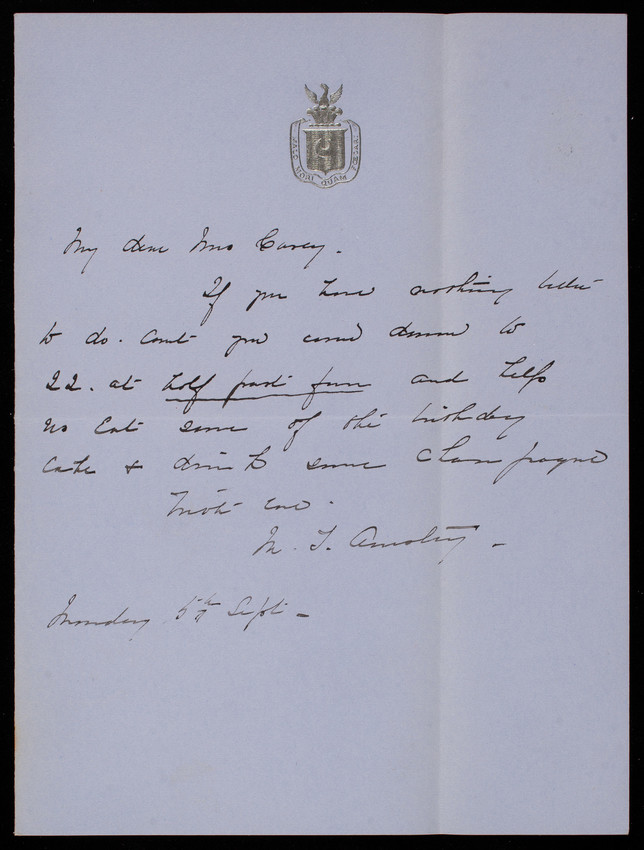 MALO MORI QUAM FOEDARI
My dear Mrs Casey.
If you have nothing better
to do. Could you come down to
22. at half past four and help
us Eat some of the birthday
Cake & drink some Champagne
M. T.
Monday 5th Sept.